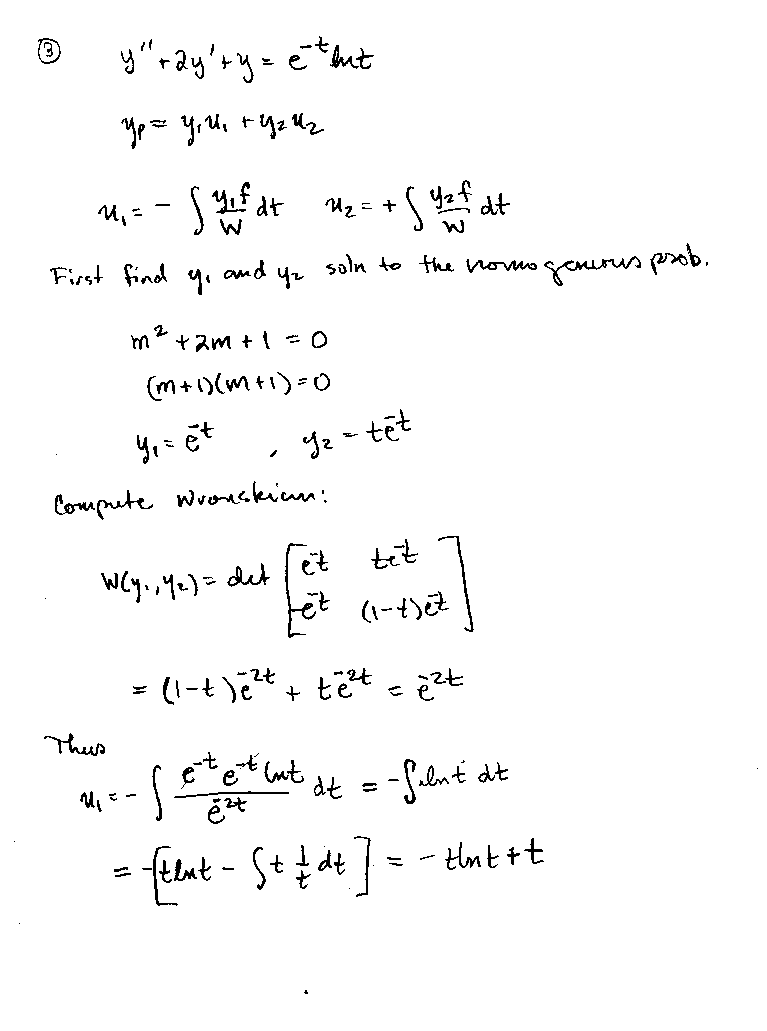 ③ y'' + 2y' + y = e^{-t} ln t
y_p = y_1 u_1 + y_2 u_2
u_1 = - ∫ y_1 f / W dt   u_2 = + ∫ y_2 f / W dt
First find y_1 and y_2 soln to the homogeneous prob.
m^2 + 2m + 1 = 0
(m+1)(m+1) = 0
y_1 = e^{-t} , y_2 = te^{-t}
Compute Wronskian:
W(y_1, y_2) = det [ e^{-t}   te^{-t}
-e^{-t}   (1-t)e^{-t} ]
= (1-t)e^{-2t} + te^{-2t} = e^{-2t}
Thus
u_1 = - ∫ e^{-t} e^{-t} ln t / e^{-2t} dt = - ∫ ln t dt
= -[t ln t - ∫ t 1/t dt] = - t ln t + t